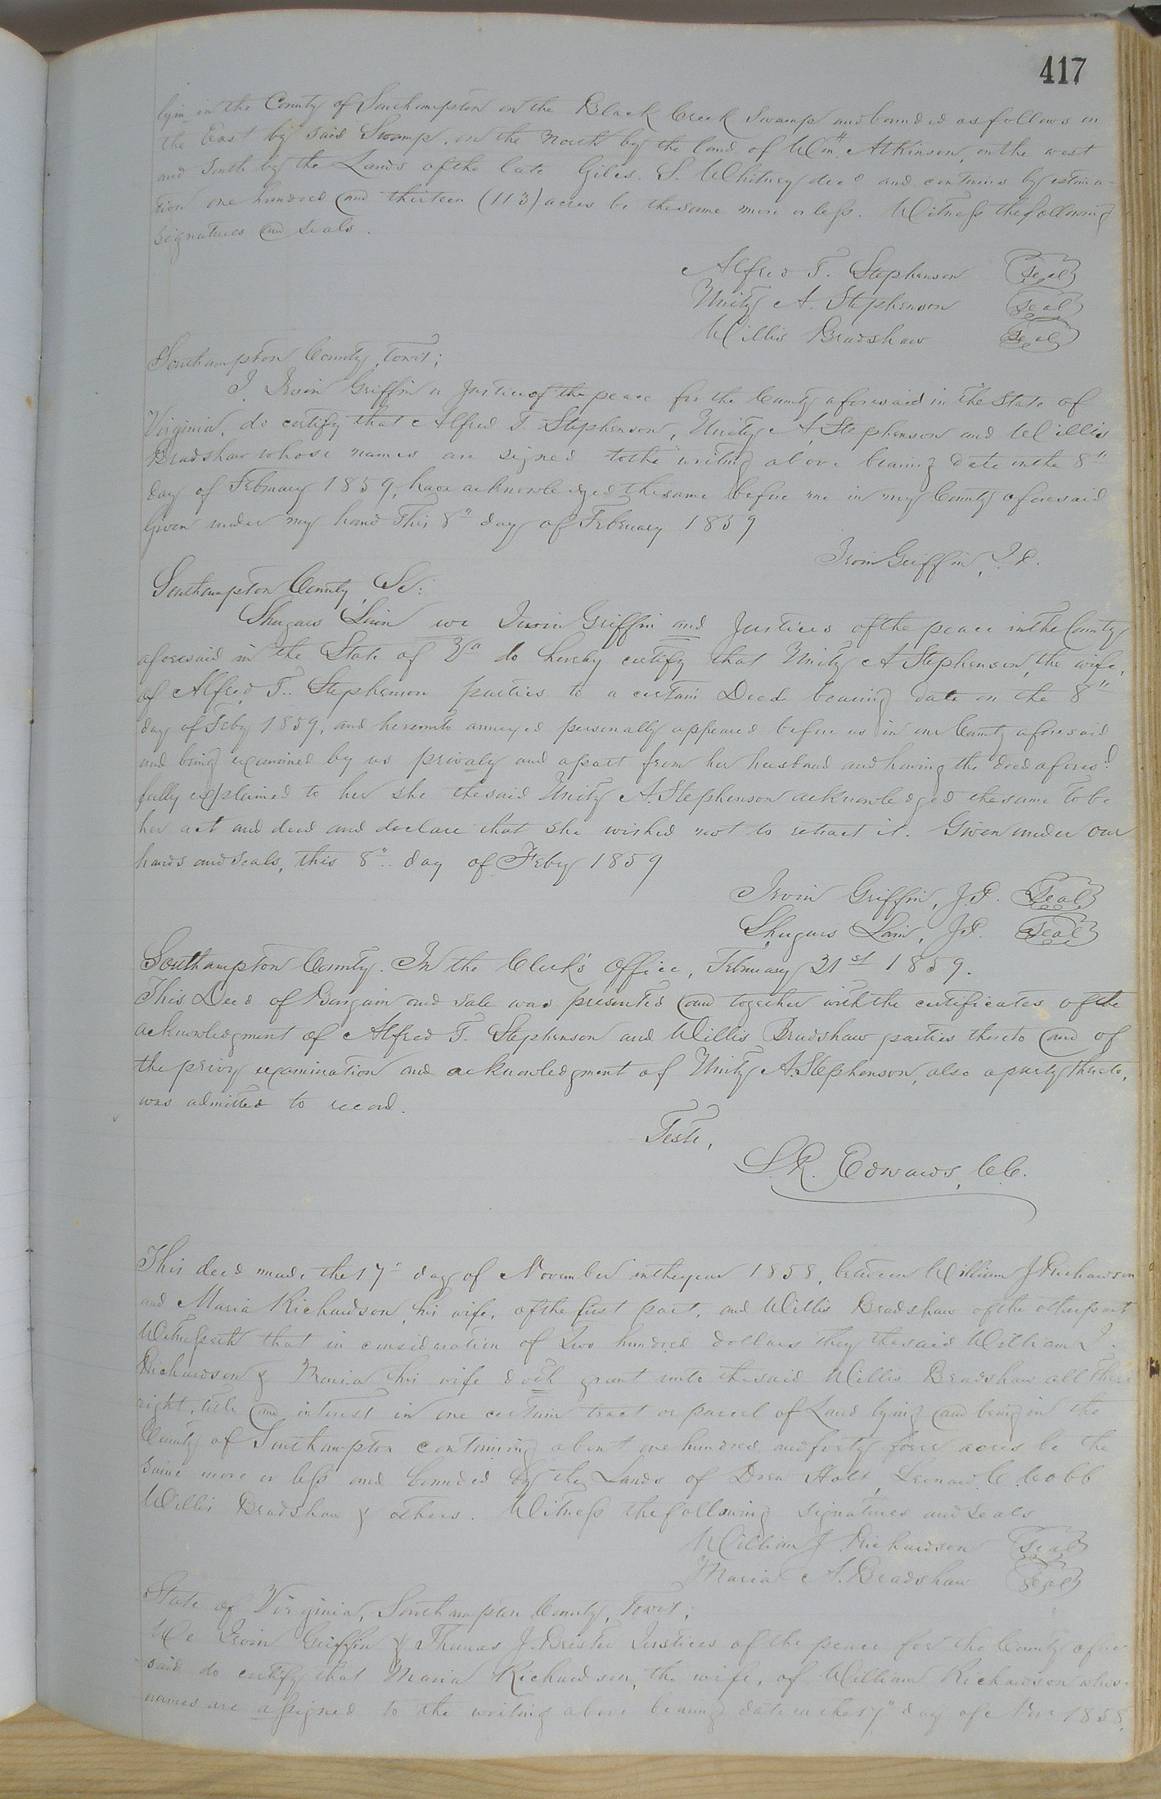 417
lyin in the County of Southampton on the Black Creek Swamp and bounded as follows on
the East by said Swamp, on the North by the land of Wm H Atkinson, on the west
and South by the Lands of the late Giles S. Whitney decd and contains by estima-
tion one hundred and thirteen (113) acres be the same more or less. Witness the following
signatures and seals.
Alfred T. Stephenson Seal
Unity A. Stephenson Seal
Willis Bradshaw Seal
Southampton County, towit;
I. Irvin Griffin a Justice of the peace for the County aforesaid in the State of
Virginia, do certify that Alfred T. Stephenson, Unity A. Stephenson and Willis
Bradshaw whose names are signed to the writing above bearing date on the 8"
day of February 1859, have acknowledged the same before me in my County aforesaid
Given under my hand this 8" day of February 1859
Irvin Griffin, J.P.
Southampton County, Sc:
Shugars Lain we Irvin Griffin and Justices of the peace in the County
aforesaid in the State of Va do hereby certify that Unity A Stephenson, the wife,
of Alfred T. Stephenson parties to a certain Deed bearing date on the 8"
day of Feby 1859, and hereunto annexed personally appeared before us in our County aforesaid
and being examined by us privaly and apart from her husband and having the deed afores.d
fully explained to her she the said Unity A. Stephenson acknowledged the same to be
her act and deed and declare that she wished not to retract it. Given under our
hands and seals, this 8" day of Feby 1859
Irvin Griffin, J.P. Seal
Shugars Lain, J.P. Seal
Southampton County. In the Clerk's Office, February 21st 1859.
This Deed of Bargain and sale was presented and together with the certificates of the
acknowledgment of Alfred T. Stephenson and Willis Bradshaw parties thereto and of
the privy examination and acknowledgment of Unity A. Stephenson, also a party thereto,
was admitted to record.
Teste,
L.R. Edwards, C.C.
This deed made the 17" day of November in the year 1858, between William J Richardson
and Maria Richardson, his wife, of the first part, and Willis Bradshaw of the other part
Witnesseth that in consideration of Two hundred dollars they the said William J.
Richardson & Maria his wife doth grant unto the said Willis Bradshaw all their
right, title and interest in one certain tract or parcel of Land lying and being in the
County of Southampton containing about one hundred and forty four acres be the
same more or less and bounded by the Lands of Drew Holt, C. Cobb
Willis Bradshaw & others. Witness the following signatures and seals
William J Richardson Seal
Maria A. Bradshaw Seal
State of Virginia, Southampton County, Towit;
We Irvin Griffin & Thomas J. Justices of the peace for the County afore
said do certify that Maria Richardson, the wife, of William Richardson whose
names are assigned to the writing above bearing date on the 17" day of Nov 1858,